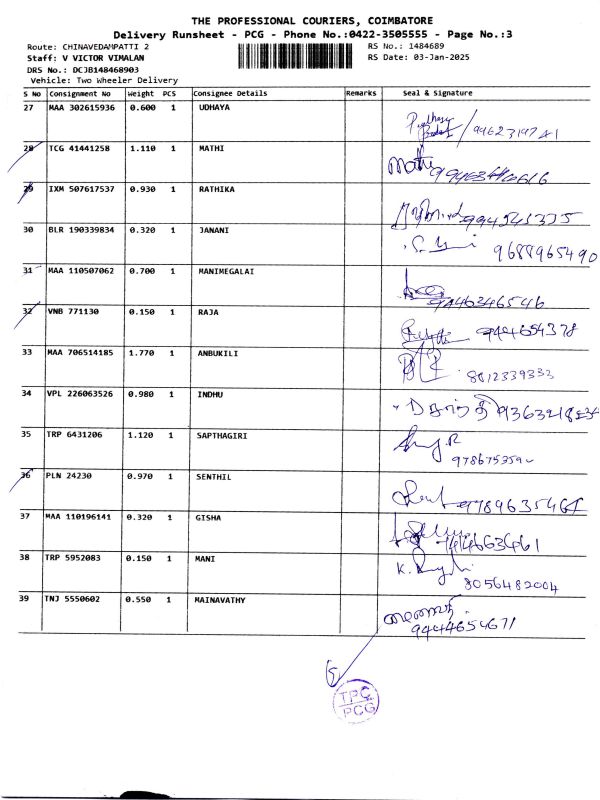 THE PROFESSIONAL COURIERS, COIMBATORE
Delivery Runsheet - PCG - Phone No.:0422-3505555 - Page No.:3
Route: CHINAVEDAMPATTI 2
RS No.: 1484689
Staff: V VICTOR VIMALAN
RS Date: 03-Jan-2025
DRS No.: DCJB148468903
Vehicle: Two Wheeler Delivery
S No Consignment No Weight PCS Consignee Details Remarks Seal & Signature
27 MAA 302615936 0.600 1 UDHAYA
28 TCG 41441258 1.110 1 MATHI
29 IXM 507617537 0.930 1 RATHIKA
30 BLR 190339834 0.320 1 JANANI 9688965490
31 MAA 110507062 0.700 1 MANIMEGALAI
32 VNB 771130 0.150 1 RAJA
33 MAA 706514185 1.770 1 ANBUKILI 8012339333
34 VPL 226063526 0.980 1 INDHU
35 TRP 6431206 1.120 1 SAPTHAGIRI
36 PLN 24230 0.970 1 SENTHIL
37 MAA 110196141 0.320 1 GISHA
38 TRP 5952083 0.150 1 MANI 8056482004
39 TNJ 5550602 0.550 1 MAINAVATHY 9444654671
TPC
PCG